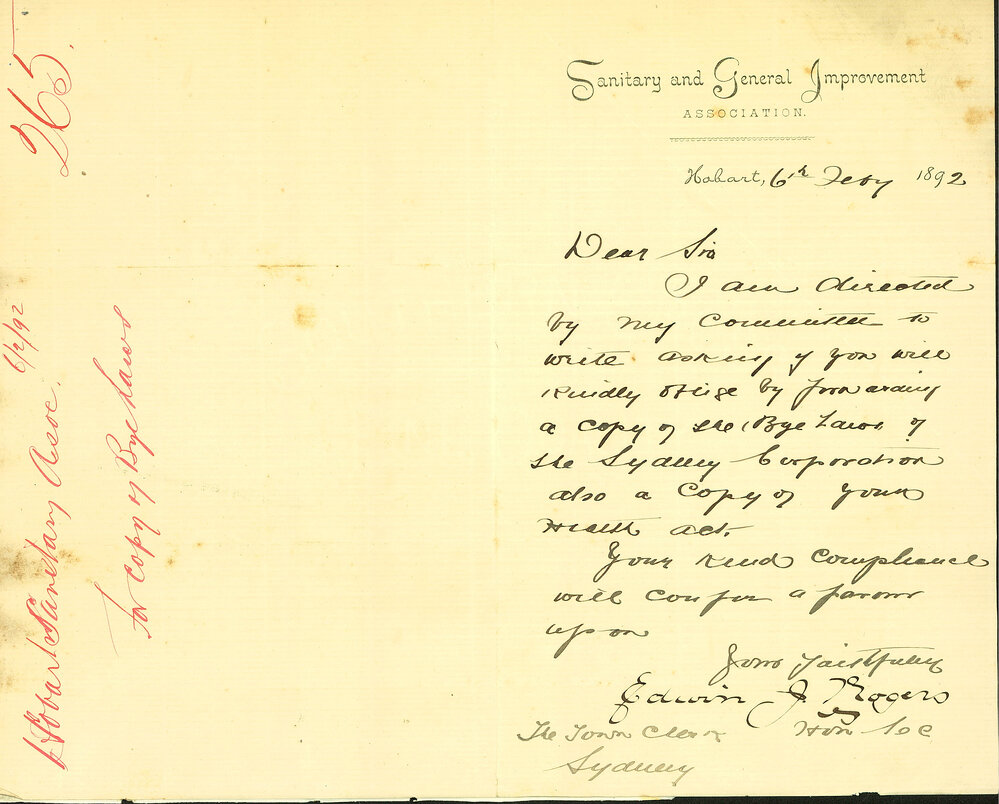 Sanitary and General Improvement
ASSOCIATION.
Hobart, 6th Feby 1892
Dear Sir
I am directed
by my Committee to
write asking if you will
kindly oblige by forwarding
a copy of the Bye Laws of
the Sydney Corporation
also a copy of your
Health Act.
Your kind compliance
will confer a favour
upon
Yours faithfully
Edwin J. Rogers
Hon Sec
The Town Clerk
Sydney
265.
Hobart Sanitary Assoc. 6/2/92
for copy of Bye Laws